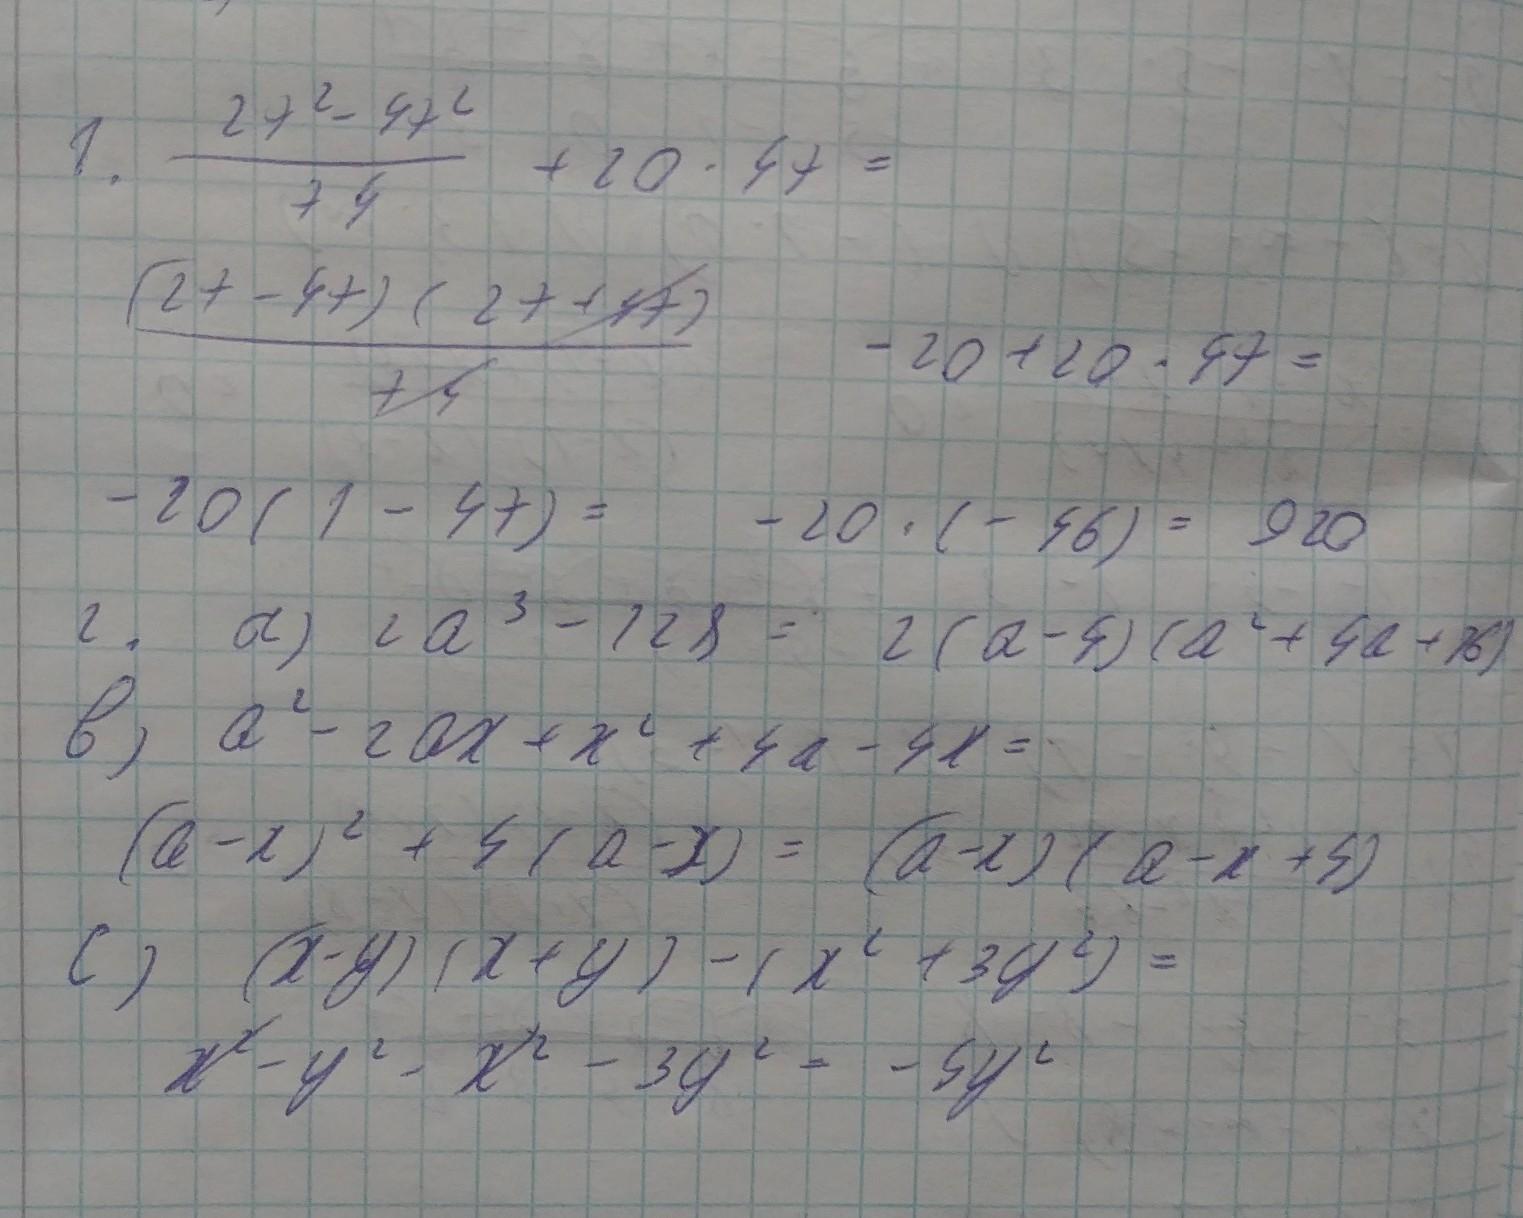 1. (27² - 47²)/74 + 20 · 47 =
(27 - 47)(27 + 47)/74     -20 + 20 · 47 =
-20(1 - 47) =     -20 · (-46) = 920
2. a) 2a³ - 128 = 2(a - 4)(a² + 4a + 16)
b) a² - 2ax + x² + 4a - 4x =
(a - x)² + 4(a - x) = (a - x)(a - x + 4)
c) (x - y)(x + y) - (x² + 3y²) =
x² - y² - x² - 3y² = -4y²